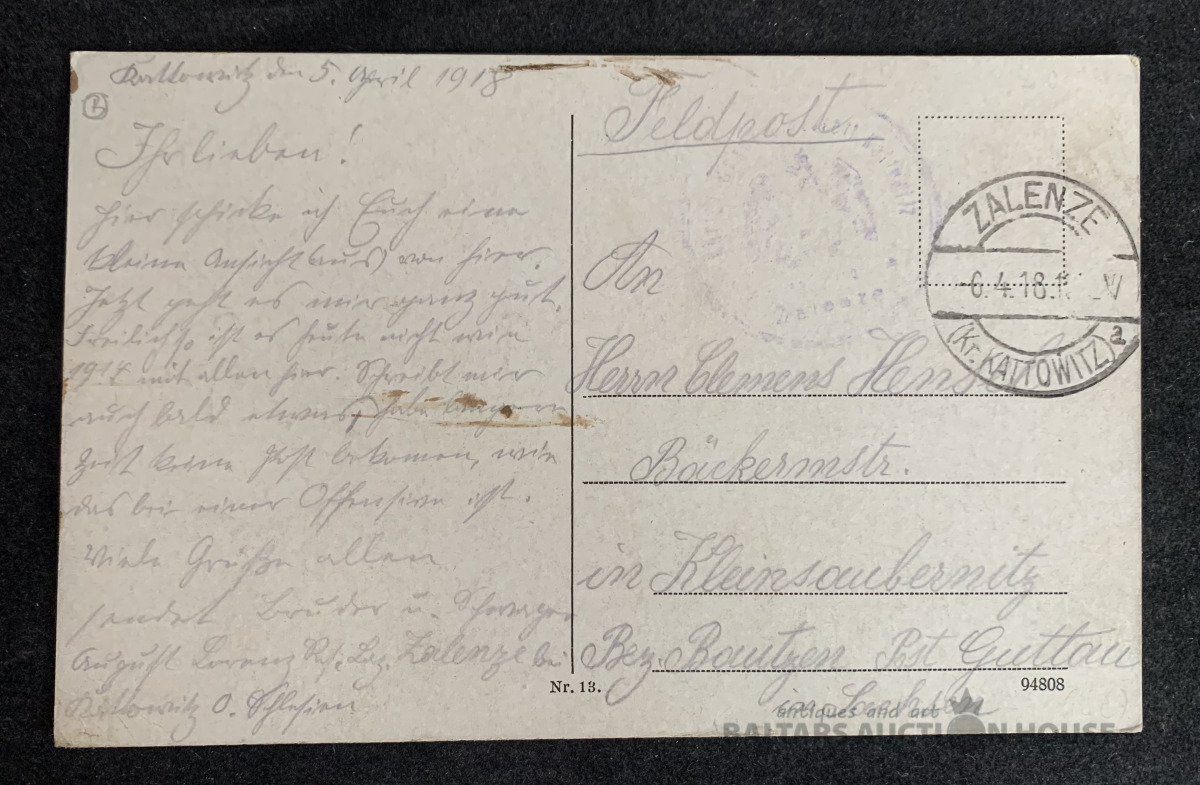 Kattowitz den 5. April 1918
Ihr lieben!
hier schicke ich Euch eine
kleine Ansicht(aus) von hier.
Jetzt geht es mir ganz gut.
Freilich ist es heute nicht wie
1914 mit allen hier. Schreibt mir
auch bald etwas, habe längere
Zeit keine Post bekomen, wie
das bei einer Offensive ist.
Viele Grüße allen
sendet Bruder u. Schwager
August Lorenz Res. Laz. Zalenze bei
Kattowitz O. Schlesien
Feldpost.
An
Herrn Clemens
Bäckermstr.
in Kleinsaubernitz
Bez. Bautzen Post Guttau
in Sachsen
ZALENZE
6.4.18.
(Kr. KATTOWITZ) a
Zalenze
Nr. 13.
94808
antiques and art
BALTARS AUCTION HOUSE